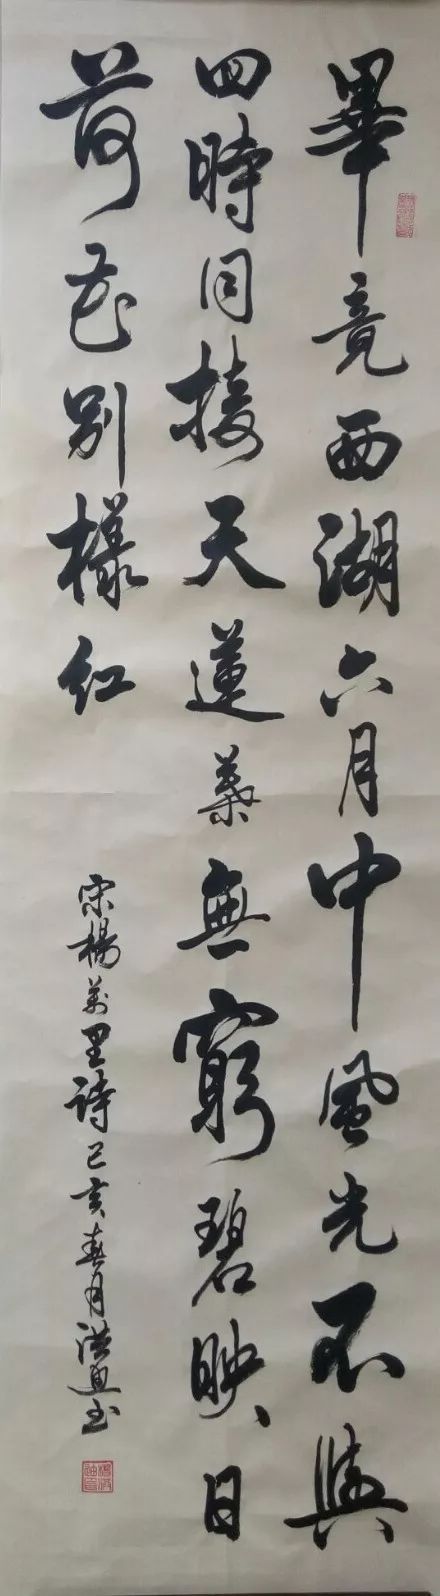 畢竟西湖六月中風光不與
四時同接天蓮葉無窮碧映日
荷花別樣紅
宋楊萬里詩己亥春月洪迪書